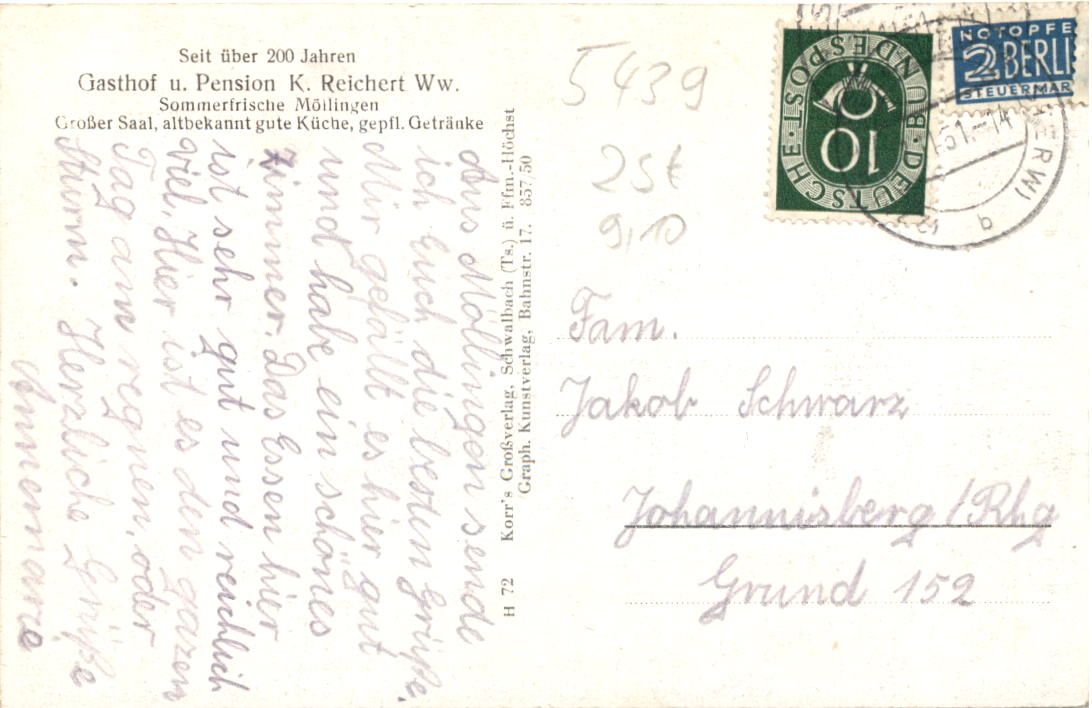 Seit über 200 Jahren
Gasthof u. Pension K. Reichert Ww.
Sommerfrische Möllingen
Großer Saal, altbekannt gute Küche, gepfl. Getränke
Aus Möllingen sende
ich Euch die besten Grüße.
Mir gefällt es hier gut
und habe ein schönes
Zimmer. Das Essen hier
ist sehr gut und reichlich
viel. Hier ist es den gazen
Tag am regnen, oder
Sturm. Herzliche Grüße
Annemarie
H 72 Korr's Großverlag, Schwalbach (Ts.) ü. Ffm.-Höchst
Graph. Kunstverlag, Bahnstr. 17. 857/50
5439
25t
9,10
DEUTSCHE · BUNDESPOST
10
NOTOPFER
2 BERLIN
STEUERMARKE
.51.-14
ERW)
q
Fam.
Jakob Schwarz
Johannisberg/Rhg
Grund 152